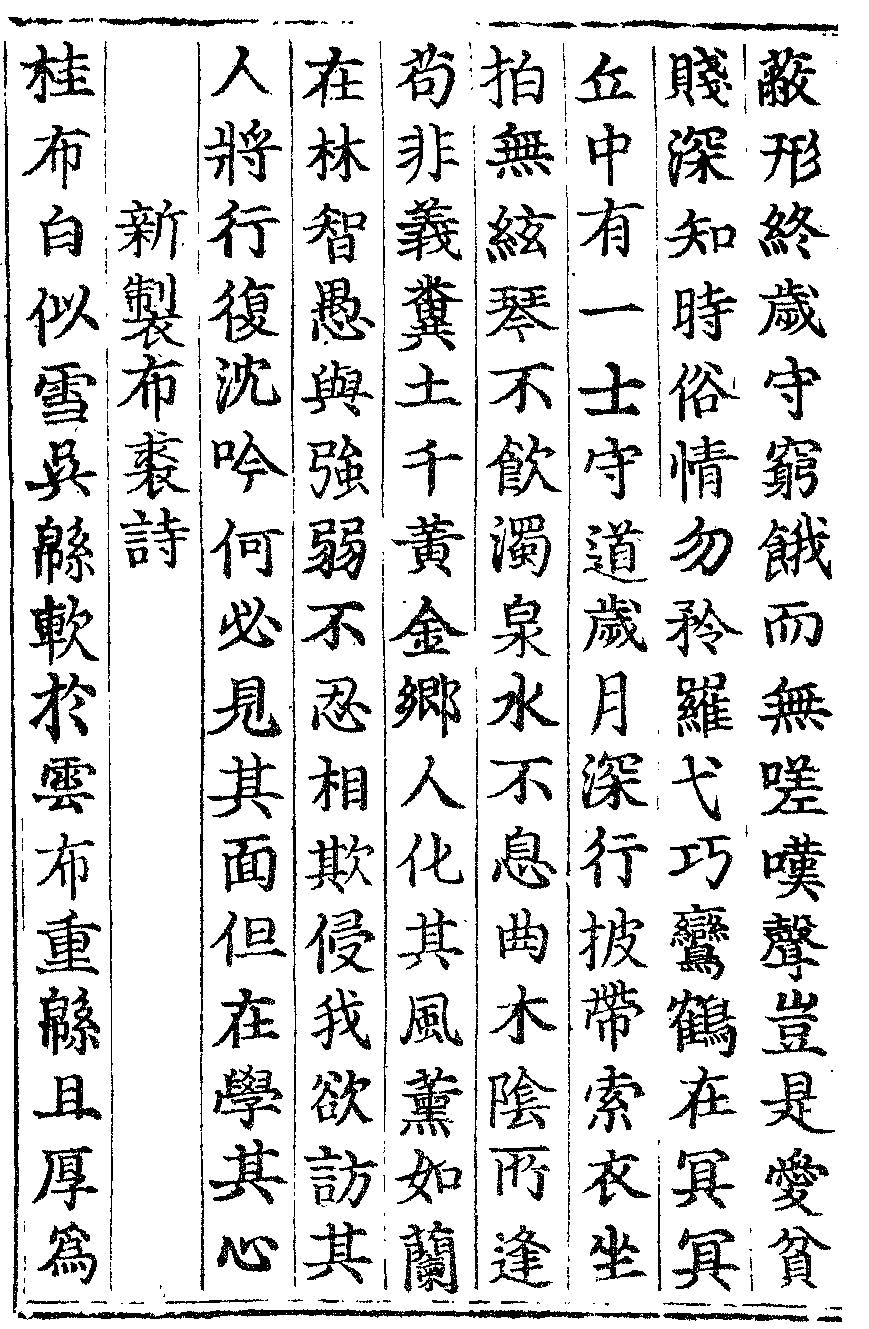 蔽形終歲守窮餓而無嗟嘆聲豈是愛貧
賤深知時俗情勿矜羅弋巧鸞鶴在冥冥
丘中有一士守道歲月深行披帶索衣坐
拍無絃琴不飲濁泉水不息曲木陰所逢
苟非義糞土千黃金鄉人化其風薰如蘭
在林智愚與強弱不忍相欺侵我欲訪其
人將行復沈吟何必見其面但在學其心
新製布裘詩
桂布白似雪吳緜軟於雲布重緜且厚為